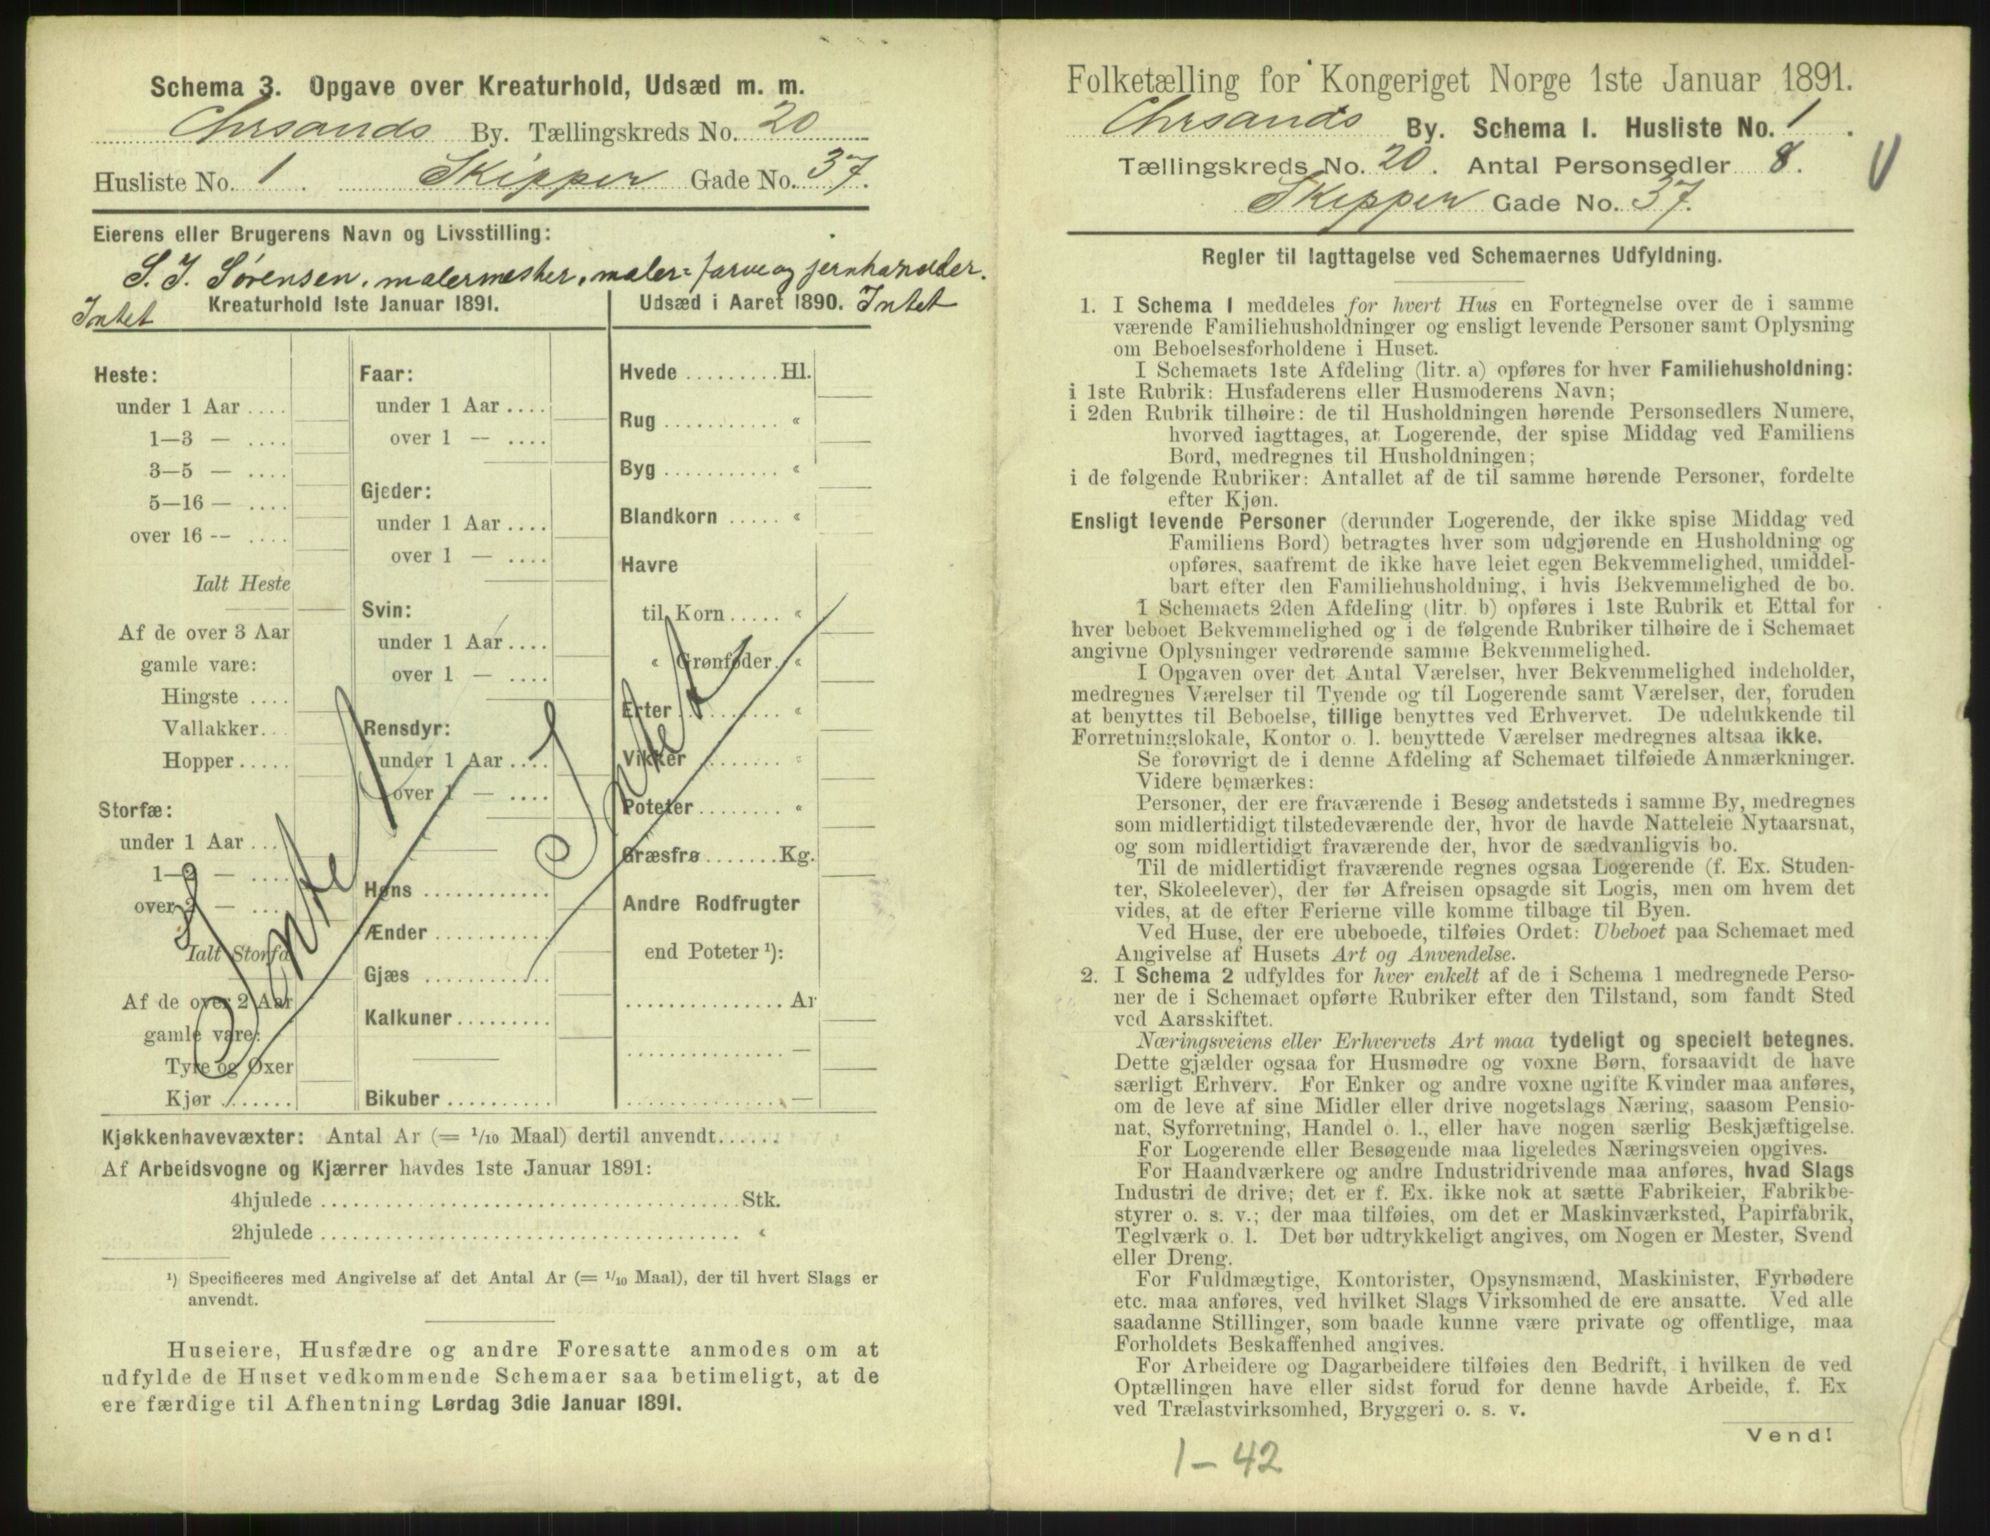 Schema 3. Opgave over Kreaturhold, Udsæd m. m.
Chrsands By. Tællingskreds No. 20
Husliste No. 1. Skipper Gade No. 37.
Eierens eller Brugerens Navn og Livsstilling:
S. J. Sørensen, malermester, maler= farve og jernhandler.
Intet Kreaturhold 1ste Januar 1891. Udsæd i Aaret 1890. Intet
Heste:
under 1 Aar ....
1—3 — ....
3—5 — ....
5—16 — ....
over 16 -- ....
Ialt Heste
Af de over 3 Aar
gamle vare:
Hingste ....
Vallakker...
Hopper.....
Storfæ:
under 1 Aar ...
1—2 — ....
over 2 — ....
Ialt Storfæ
Af de over 2 Aar
gamle vare:
Tyre og Oxer
Kjør .......
Faar:
under 1 Aar ....
over 1 — ....
Gjeder:
under 1 Aar ....
over 1 — ....
Svin:
under 1 Aar ....
over 1 — ....
Rensdyr:
under 1 Aar ....
over 1 — ....
Høns ............
Ænder ...........
Gjæs ............
Kalkuner.........
Bikuber ..........
Hvede ......... Hl.
Rug ........... «
Byg ........... «
Blandkorn ..... «
Havre
til Korn ..... «
« Grønfoder. «
Erter ......... «
Vikker ....... «
Poteter ........ «
Græsfrø ....... Kg.
Andre Rodfrugter
end Poteter ¹):
............... Ar
............... —
............... —
Intet Intet
Kjøkkenhavevæxter: Antal Ar (= 1/10 Maal) dertil anvendt......
Af Arbeidsvogne og Kjærrer havdes 1ste Januar 1891:
4hjulede ..................................... Stk.
2hjulede ..................................... «
¹) Specificeres med Angivelse af det Antal Ar (= 1/10 Maal), der til hvert Slags er
anvendt.
Huseiere, Husfædre og andre Foresatte anmodes om at
udfylde de Huset vedkommende Schemaer saa betimeligt, at de
ere færdige til Afhentning Lørdag 3die Januar 1891.
Folketælling for Kongeriget Norge 1ste Januar 1891.
Chrsands By. Schema I. Husliste No. 1.
Tællingskreds No. 20. Antal Personsedler 8.
Skipper Gade No. 37.
Regler til Iagttagelse ved Schemaernes Udfyldning.
1. I Schema 1 meddeles for hvert Hus en Fortegnelse over de i samme
værende Familiehusholdninger og ensligt levende Personer samt Oplysning
om Beboelsesforholdene i Huset.
I Schemaets 1ste Afdeling (litr. a) opføres for hver Familiehusholdning:
i 1ste Rubrik: Husfaderens eller Husmoderens Navn;
i 2den Rubrik tilhøire: de til Husholdningen hørende Personsedlers Numere,
hvorved iagttages, at Logerende, der spise Middag ved Familiens
Bord, medregnes til Husholdningen;
i de følgende Rubriker: Antallet af de til samme hørende Personer, fordelte
efter Kjøn.
Ensligt levende Personer (derunder Logerende, der ikke spise Middag ved
Familiens Bord) betragtes hver som udgjørende en Husholdning og
opføres, saafremt de ikke have leiet egen Bekvemmelighed, umiddel-
bart efter den Familiehusholdning, i hvis Bekvemmelighed de bo.
I Schemaets 2den Afdeling (litr. b) opføres i 1ste Rubrik et Ettal for
hver beboet Bekvemmelighed og i de følgende Rubriker tilhøire de i Schemaet
angivne Oplysninger vedrørende samme Bekvemmelighed.
I Opgaven over det Antal Værelser, hver Bekvemmelighed indeholder,
medregnes Værelser til Tyende og til Logerende samt Værelser, der, foruden
at benyttes til Beboelse, tillige benyttes ved Erhvervet. De udelukkende til
Forretningslokale, Kontor o. l. benyttede Værelser medregnes altsaa ikke.
Se forøvrigt de i denne Afdeling af Schemaet tilføiede Anmærkninger.
Videre bemærkes:
Personer, der ere fraværende i Besøg andetsteds i samme By, medregnes
som midlertidigt tilstedeværende der, hvor de havde Natteleie Nytaarsnat,
og som midlertidigt fraværende der, hvor de sædvanligvis bo.
Til de midlertidigt fraværende regnes ogsaa Logerende (f. Ex. Studen-
ter, Skoleelever), der før Afreisen opsagde sit Logis, men om hvem det
vides, at de efter Ferierne ville komme tilbage til Byen.
Ved Huse, der ere ubeboede, tilføies Ordet: Ubeboet paa Schemaet med
Angivelse af Husets Art og Anvendelse.
2. I Schema 2 udfyldes for hver enkelt af de i Schema 1 medregnede Perso-
ner de i Schemaet opførte Rubriker efter den Tilstand, som fandt Sted
ved Aarsskiftet.
Næringsveiens eller Erhvervets Art maa tydeligt og specielt betegnes.
Dette gjælder ogsaa for Husmødre og voxne Børn, forsaavidt de have
særligt Erhverv. For Enker og andre voxne ugifte Kvinder maa anføres,
om de leve af sine Midler eller drive nogetslags Næring, saasom Pensio-
nat, Syforretning, Handel o. l., eller have nogen særlig Beskjæftigelse.
For Logerende eller Besøgende maa ligeledes Næringsveien opgives.
For Haandværkere og andre Industridrivende maa anføres, hvad Slags
Industri de drive; det er f. Ex. ikke nok at sætte Fabrikeier, Fabrikbe-
styrer o. s. v.; der maa tilføies, om det er Maskinværksted, Papirfabrik,
Teglværk o. l. Det bør udtrykkeligt angives, om Nogen er Mester, Svend
eller Dreng.
For Fuldmægtige, Kontorister, Opsynsmænd, Maskinister, Fyrbødere
etc. maa anføres, ved hvilket Slags Virksomhed de ere ansatte. Ved alle
saadanne Stillinger, som baade kunne være private og offentlige, maa
Forholdets Beskaffenhed angives.
For Arbeidere og Dagarbeidere tilføies den Bedrift, i hvilken de ved
Optællingen have eller sidst forud for denne havde Arbeide, f. Ex
ved Trælastvirksomhed, Bryggeri o. s. v.
Vend!
1-42